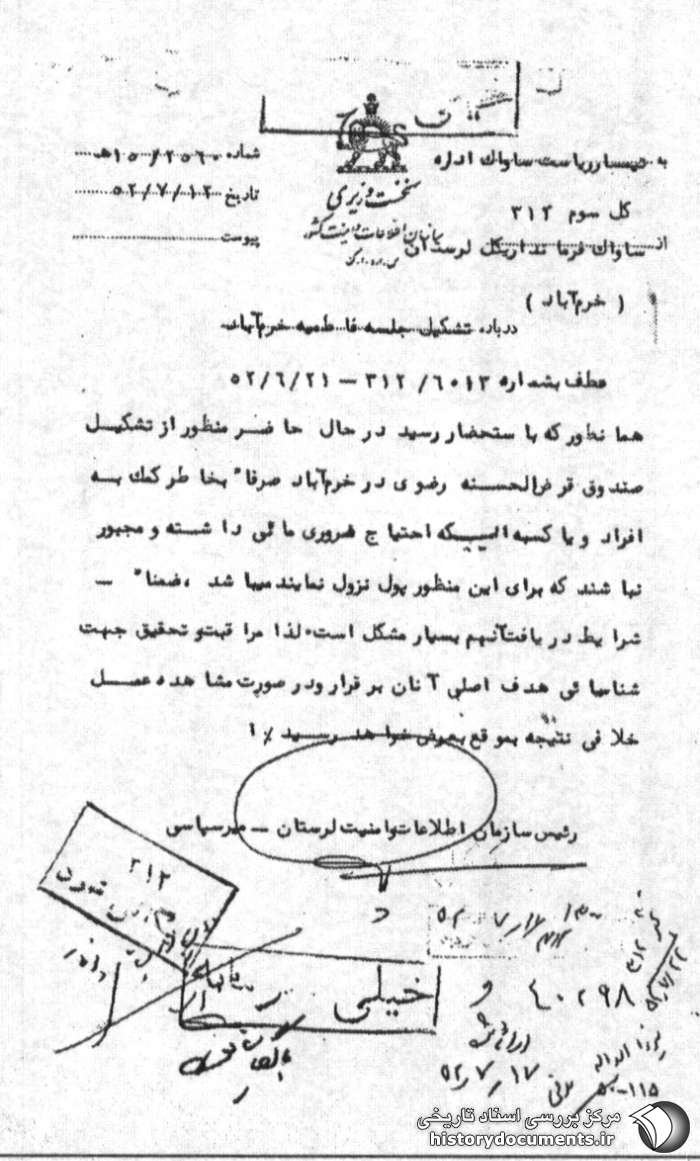 به تیمسار ریاست ساواک اداره
کل سوم ۳۱۲
از ساواک فرمانداریکل لرستان
( خرم‌آباد )
نخست وزیری
سازمان اطلاعات و امنیت کشور
س.ا.و.ا.ک
شماره ۲۵۶۰/۱۵ ه
تاریخ ۵۲/۷/۱۲
پیوست
درباره تشکیل جلسه فاطمیه خرم‌آباد
عطف بشماره ۶۰۱۳/ ۳۱۲ — ۵۲/۶/۲۱
همانطور که باستحضار رسید در حال حاضر منظور از تشکیل
صندوق قرض‌الحسنه رضوی در خرم‌آباد صرفا" بخاطر کمک به
افراد و یا کسبه ایست که احتیاج ضروری مائی داشته و مجبور
نباشند که برای این منظور پول نزول نمایند میباشد ،ضمنا" —
شرایط دریافت آنهم بسیار مشکل است.لذا مراقبت و تحقیق جهت
شناسائی هدف اصلی آنان برقرار و در صورت مشاهده عمل
خلافی نتیجه بموقع بعرض خواهد رسید /۱
رئیس سازمان اطلاعات و امنیت لرستان — میرسپاسی
۳۱۲
۵۲/۷/۱۶
خیلی
و ۴۰۲۹۸
۵۲/۷/۱۷
۵۲/۷/۲۲
۵۰-۱۱۵
مرکز بررسی اسناد تاریخی
historydocuments.ir